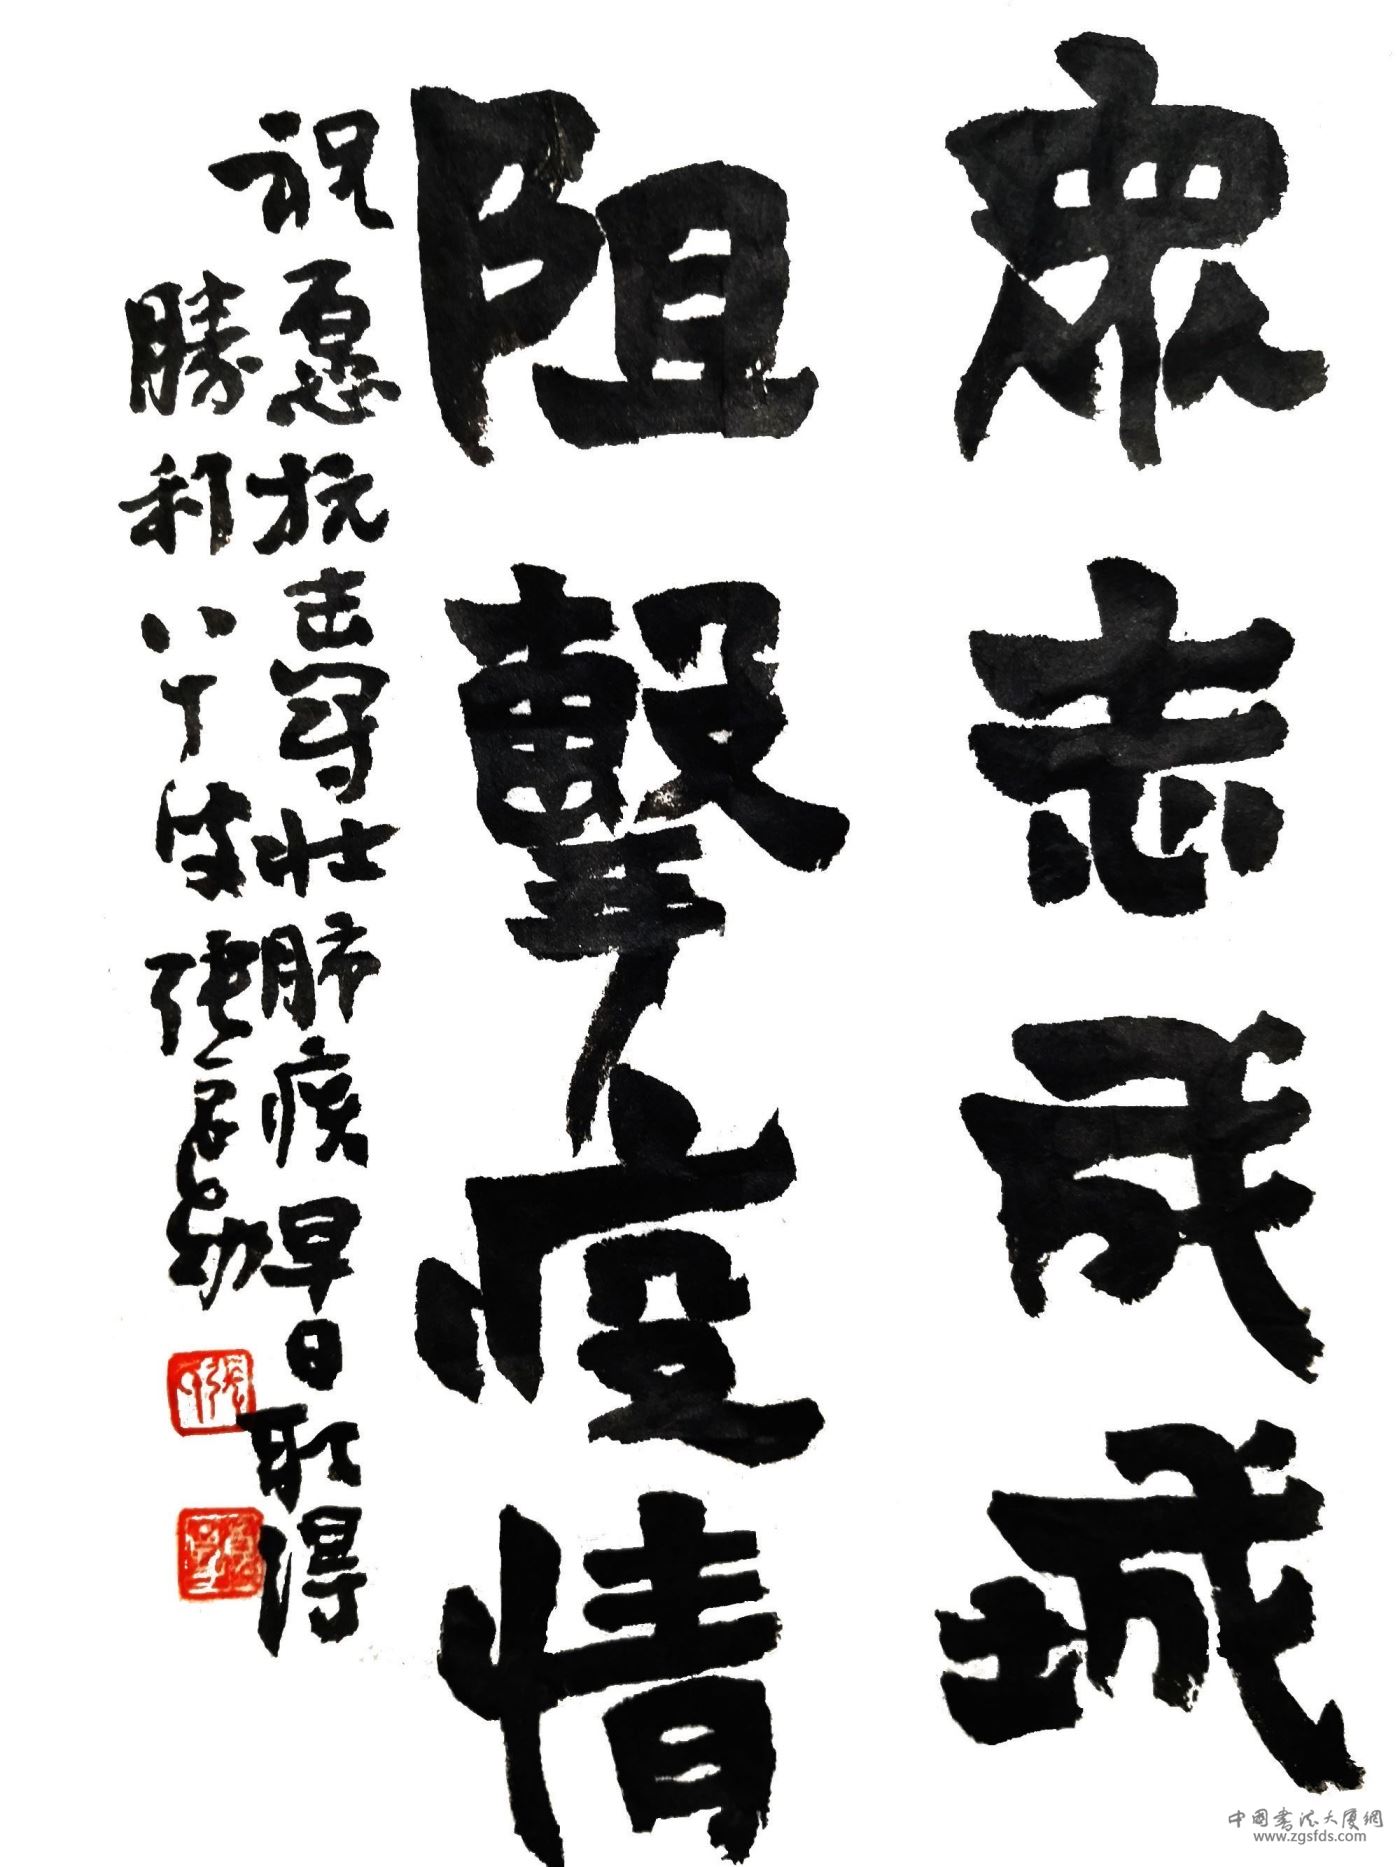 眾志成城
阻擊疫情
祝愿抗击冠壮肺疾早日取得
勝利八十歲張
中国書法大厦網
www.zgsfds.com